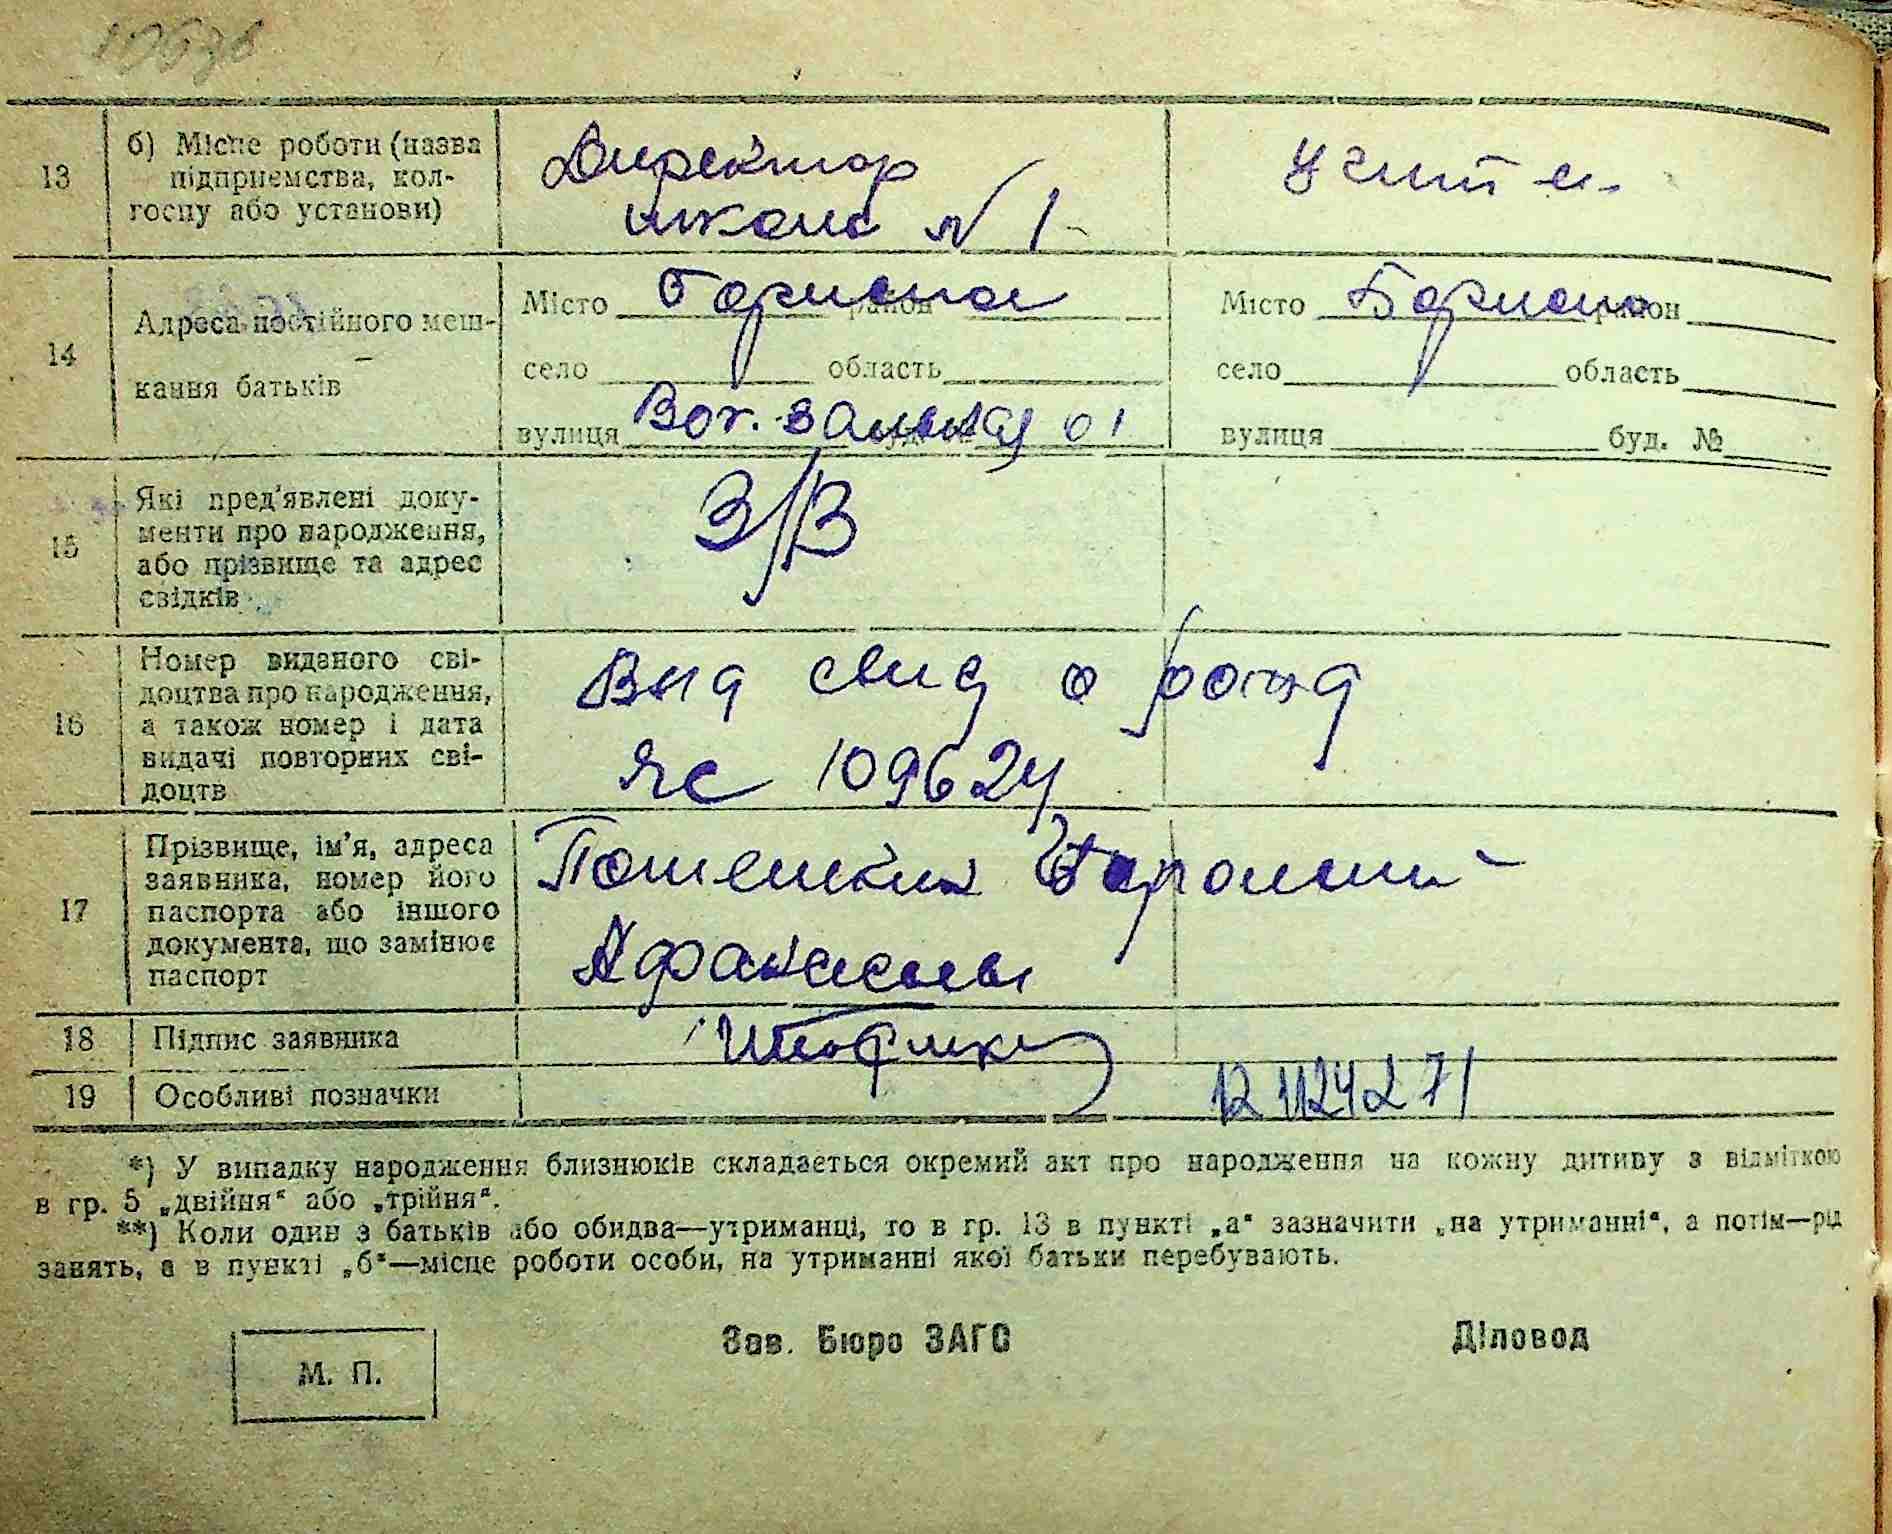 13 б) Місце роботи (назва підприємства, колгоспу або установи)
Директор
школа N 1
учит
14 Адреса постійного мешкання батьків
Місто район
село область
Вокзальная 61
вулиця
Місто район
село область
вулиця буд. №
15 Які пред'явлені документи про народження, або прізвище та адрес свідків
З/В
16 Номер виданого свідоцтва про народження, а також номер і дата видачі повторних свідоцтв
Выд свид о рожд
ЯС 109624
17 Прізвище, ім'я, адреса заявника, номер його паспорта або іншого документа, що замінює паспорт
18 Підпис заявника
19 Особливі позначки
*) У випадку народження близнюків складається окремий акт про народження на кожну дитину з відміткою
в гр. 5 „двійня“ або „трійня“.
**) Коли один з батьків або обидва—утриманці, то в гр. 13 в пункті „а“ зазначити „на утриманні“, а потім—рід
занять, а в пункті „б“—місце роботи особи, на утриманні якої батьки перебувають.
Зав. Бюро ЗАГС
Діловод
М. П.